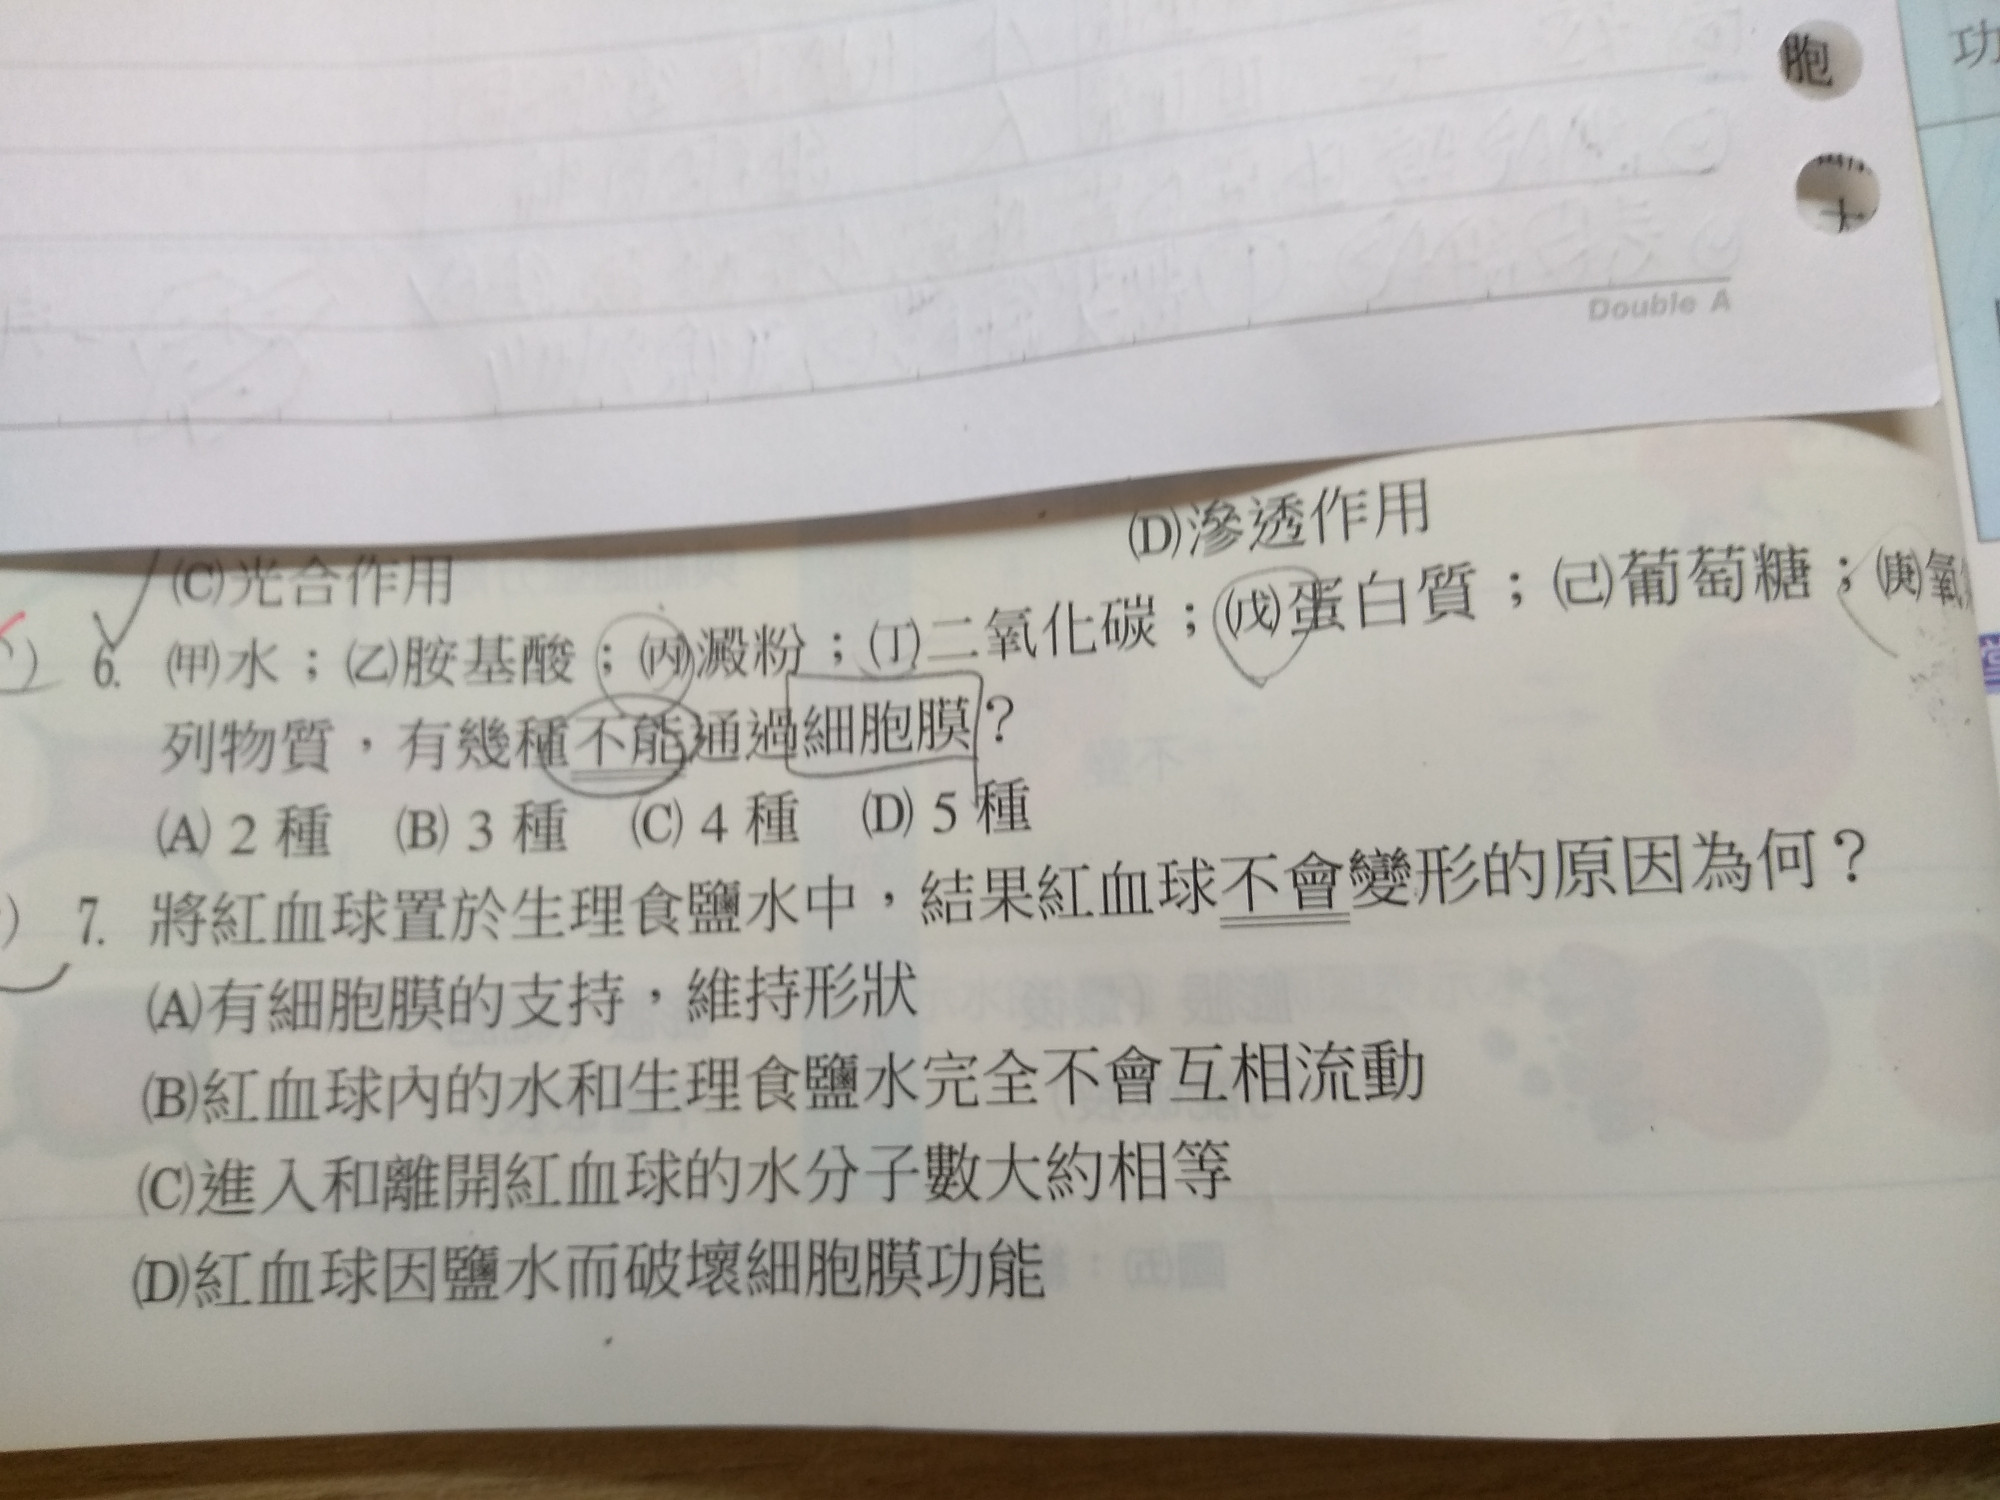 胞
功
大
Double A
(D)滲透作用
(C)光合作用
6. (甲)水；(乙)胺基酸；(丙)澱粉；(丁)二氧化碳；(戊)蛋白質；(己)葡萄糖；(庚)氧
列物質，有幾種不能通過細胞膜？
(A) 2 種 (B) 3 種 (C) 4 種 (D) 5 種
7. 將紅血球置於生理食鹽水中，結果紅血球不會變形的原因為何？
(A)有細胞膜的支持，維持形狀
(B)紅血球內的水和生理食鹽水完全不會互相流動
(C)進入和離開紅血球的水分子數大約相等
(D)紅血球因鹽水而破壞細胞膜功能